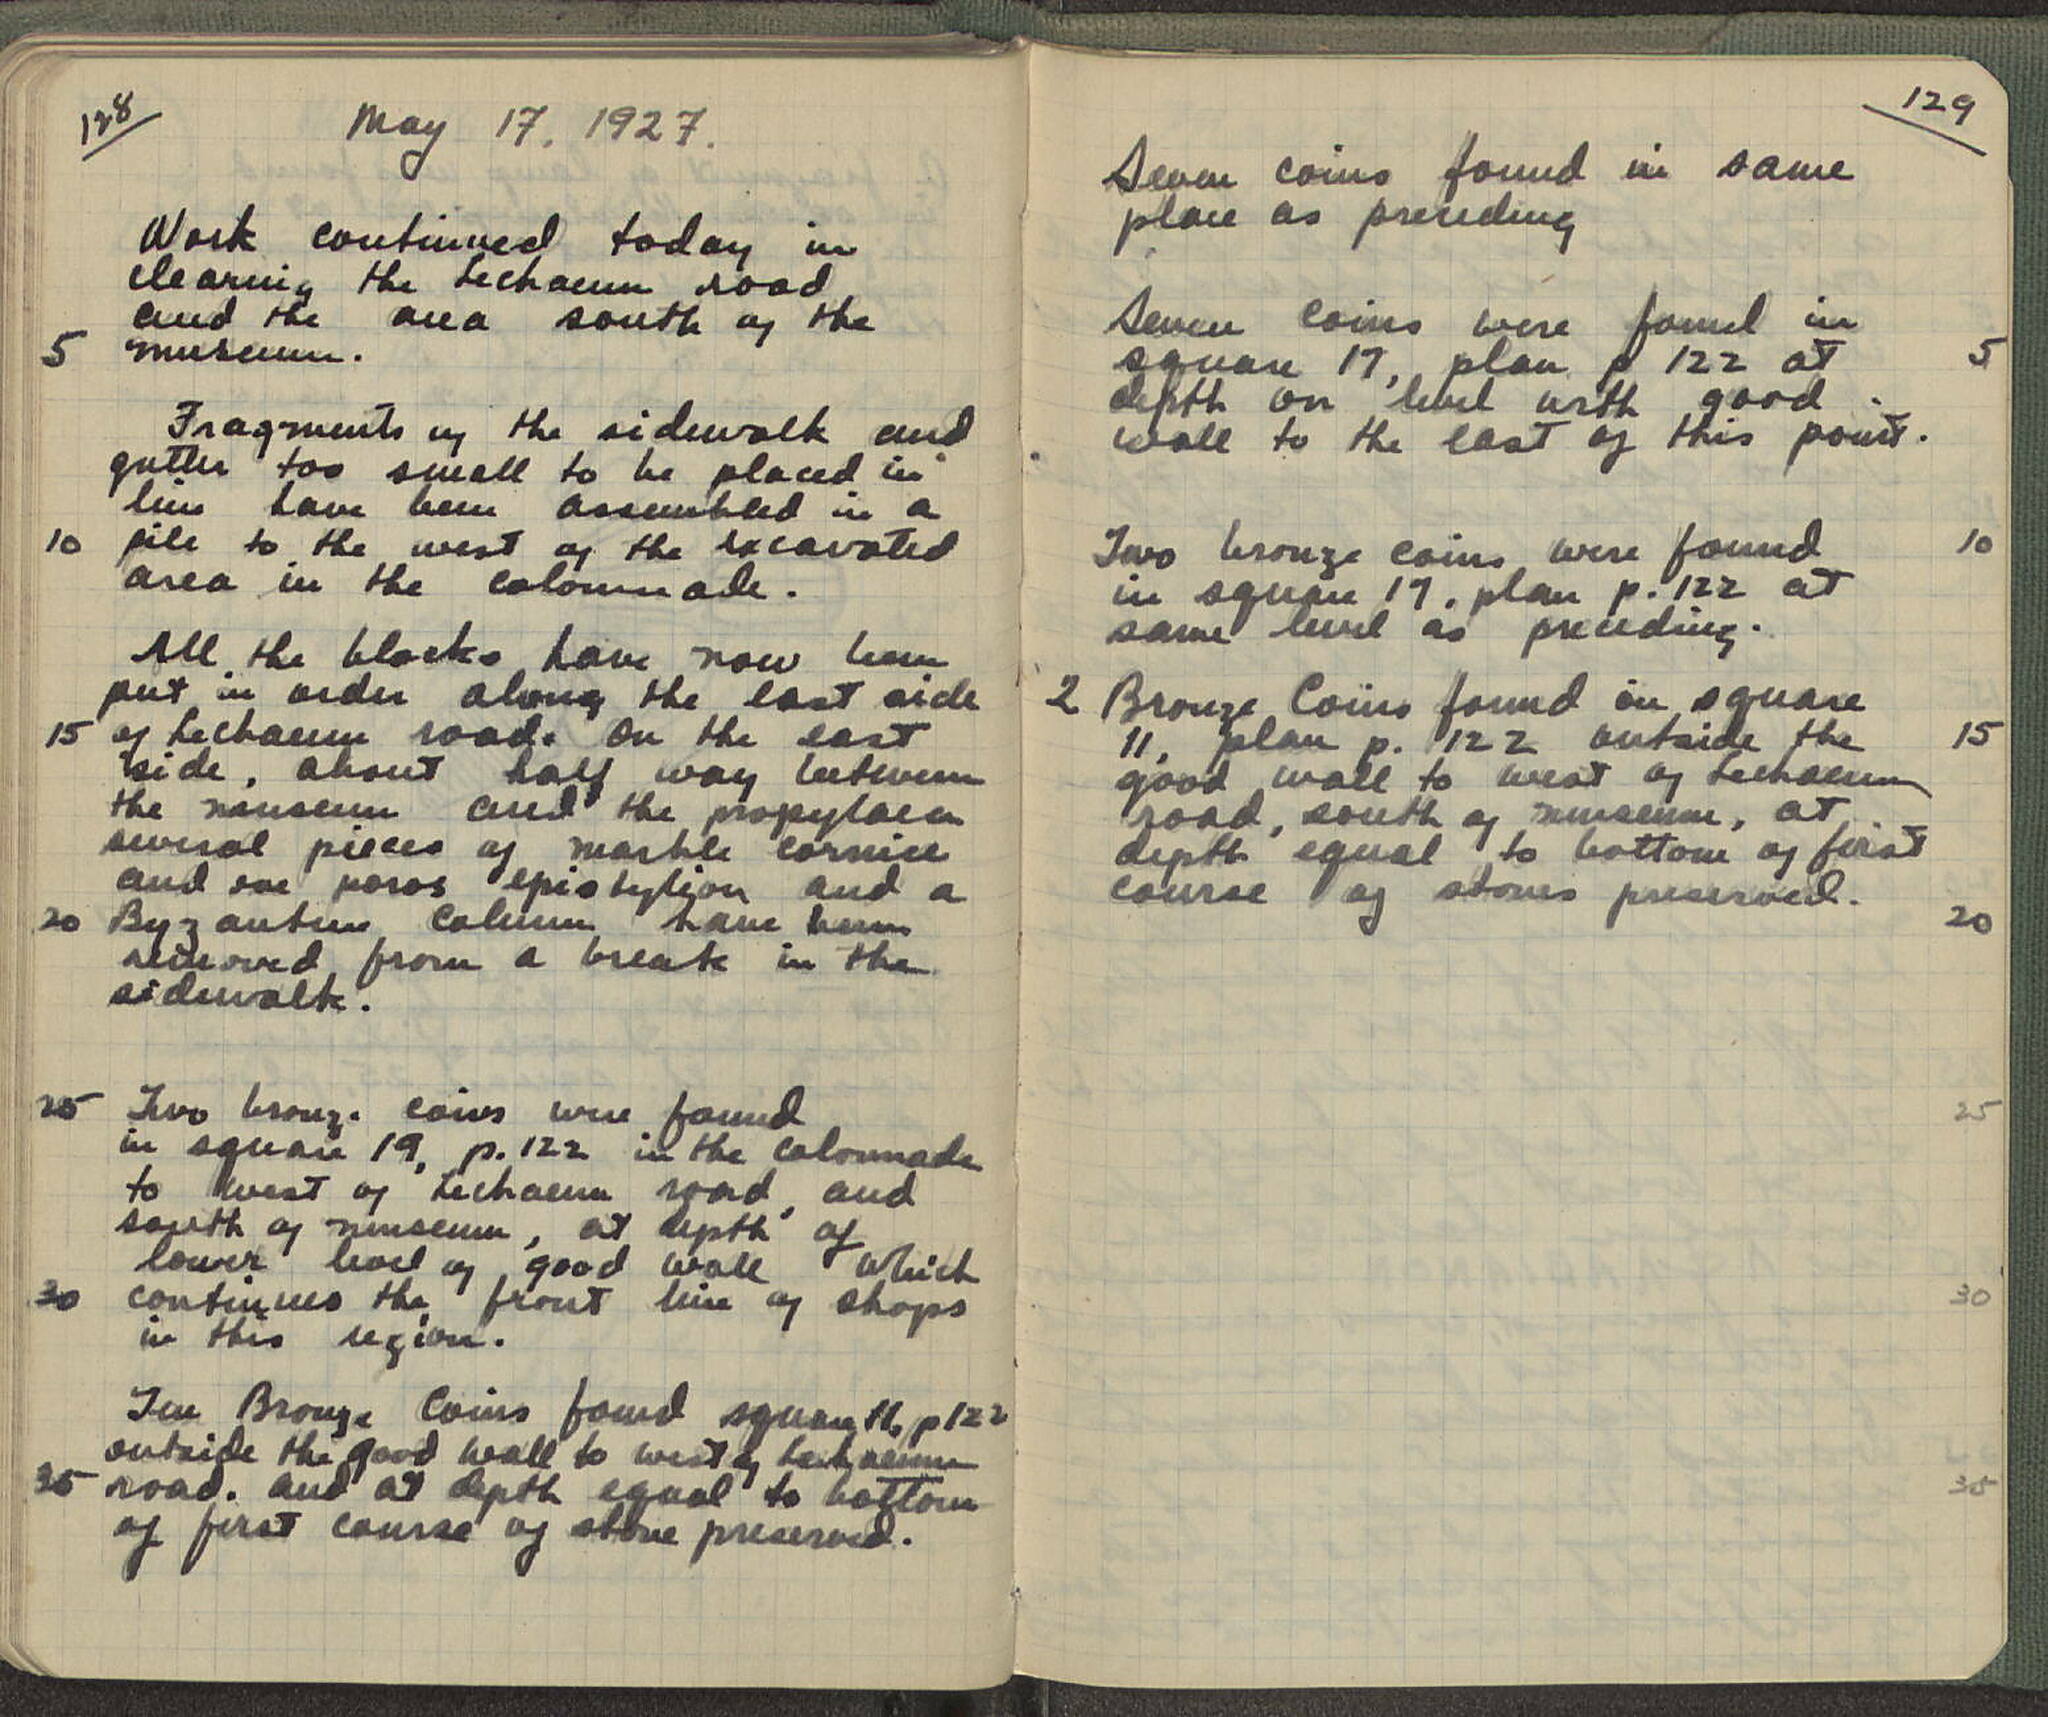 128
May 17, 1927.
Work continued today in
clearing the Lechaeum road
and the area south of the
5 museum.
Fragments of the sidewalk and
gutter too small to be placed in
line have been assembled in a
10 pile to the west of the excavated
area in the colonnade.
All the blocks have now been
put in order along the east side
15 of Lechaeum road. On the east
side, about half way between
the museum and the propylaea
several pieces of marble cornice
and one poros epistylion and a
20 Byzantine column have been
removed from a break in the
sidewalk.
25 Two bronze coins were found
in square 19, p. 122 in the colonnade
to west of Lechaeum road, and
south of museum, at depth of
lower level of good wall which
30 continues the front line of shops
in this region.
Ten Bronze Coins found square 11, p 122
outside the good wall to west of Lechaeum
35 road. and at depth equal to bottom
of first course of stone preserved.
129
Seven coins found in same
place as preceding
Seven coins were found in
square 17, plan p 122 at 5
depth on level with good
wall to the east of this point.
Two bronze coins were found 10
in square 17, plan p. 122 at
same level as preceding.
2 Bronze Coins found in square
11, plan p. 122 outside the 15
good wall to west of Lechaeum
road, south of museum, at
depth equal to bottom of first
course of stones preserved.
20
25
30
35